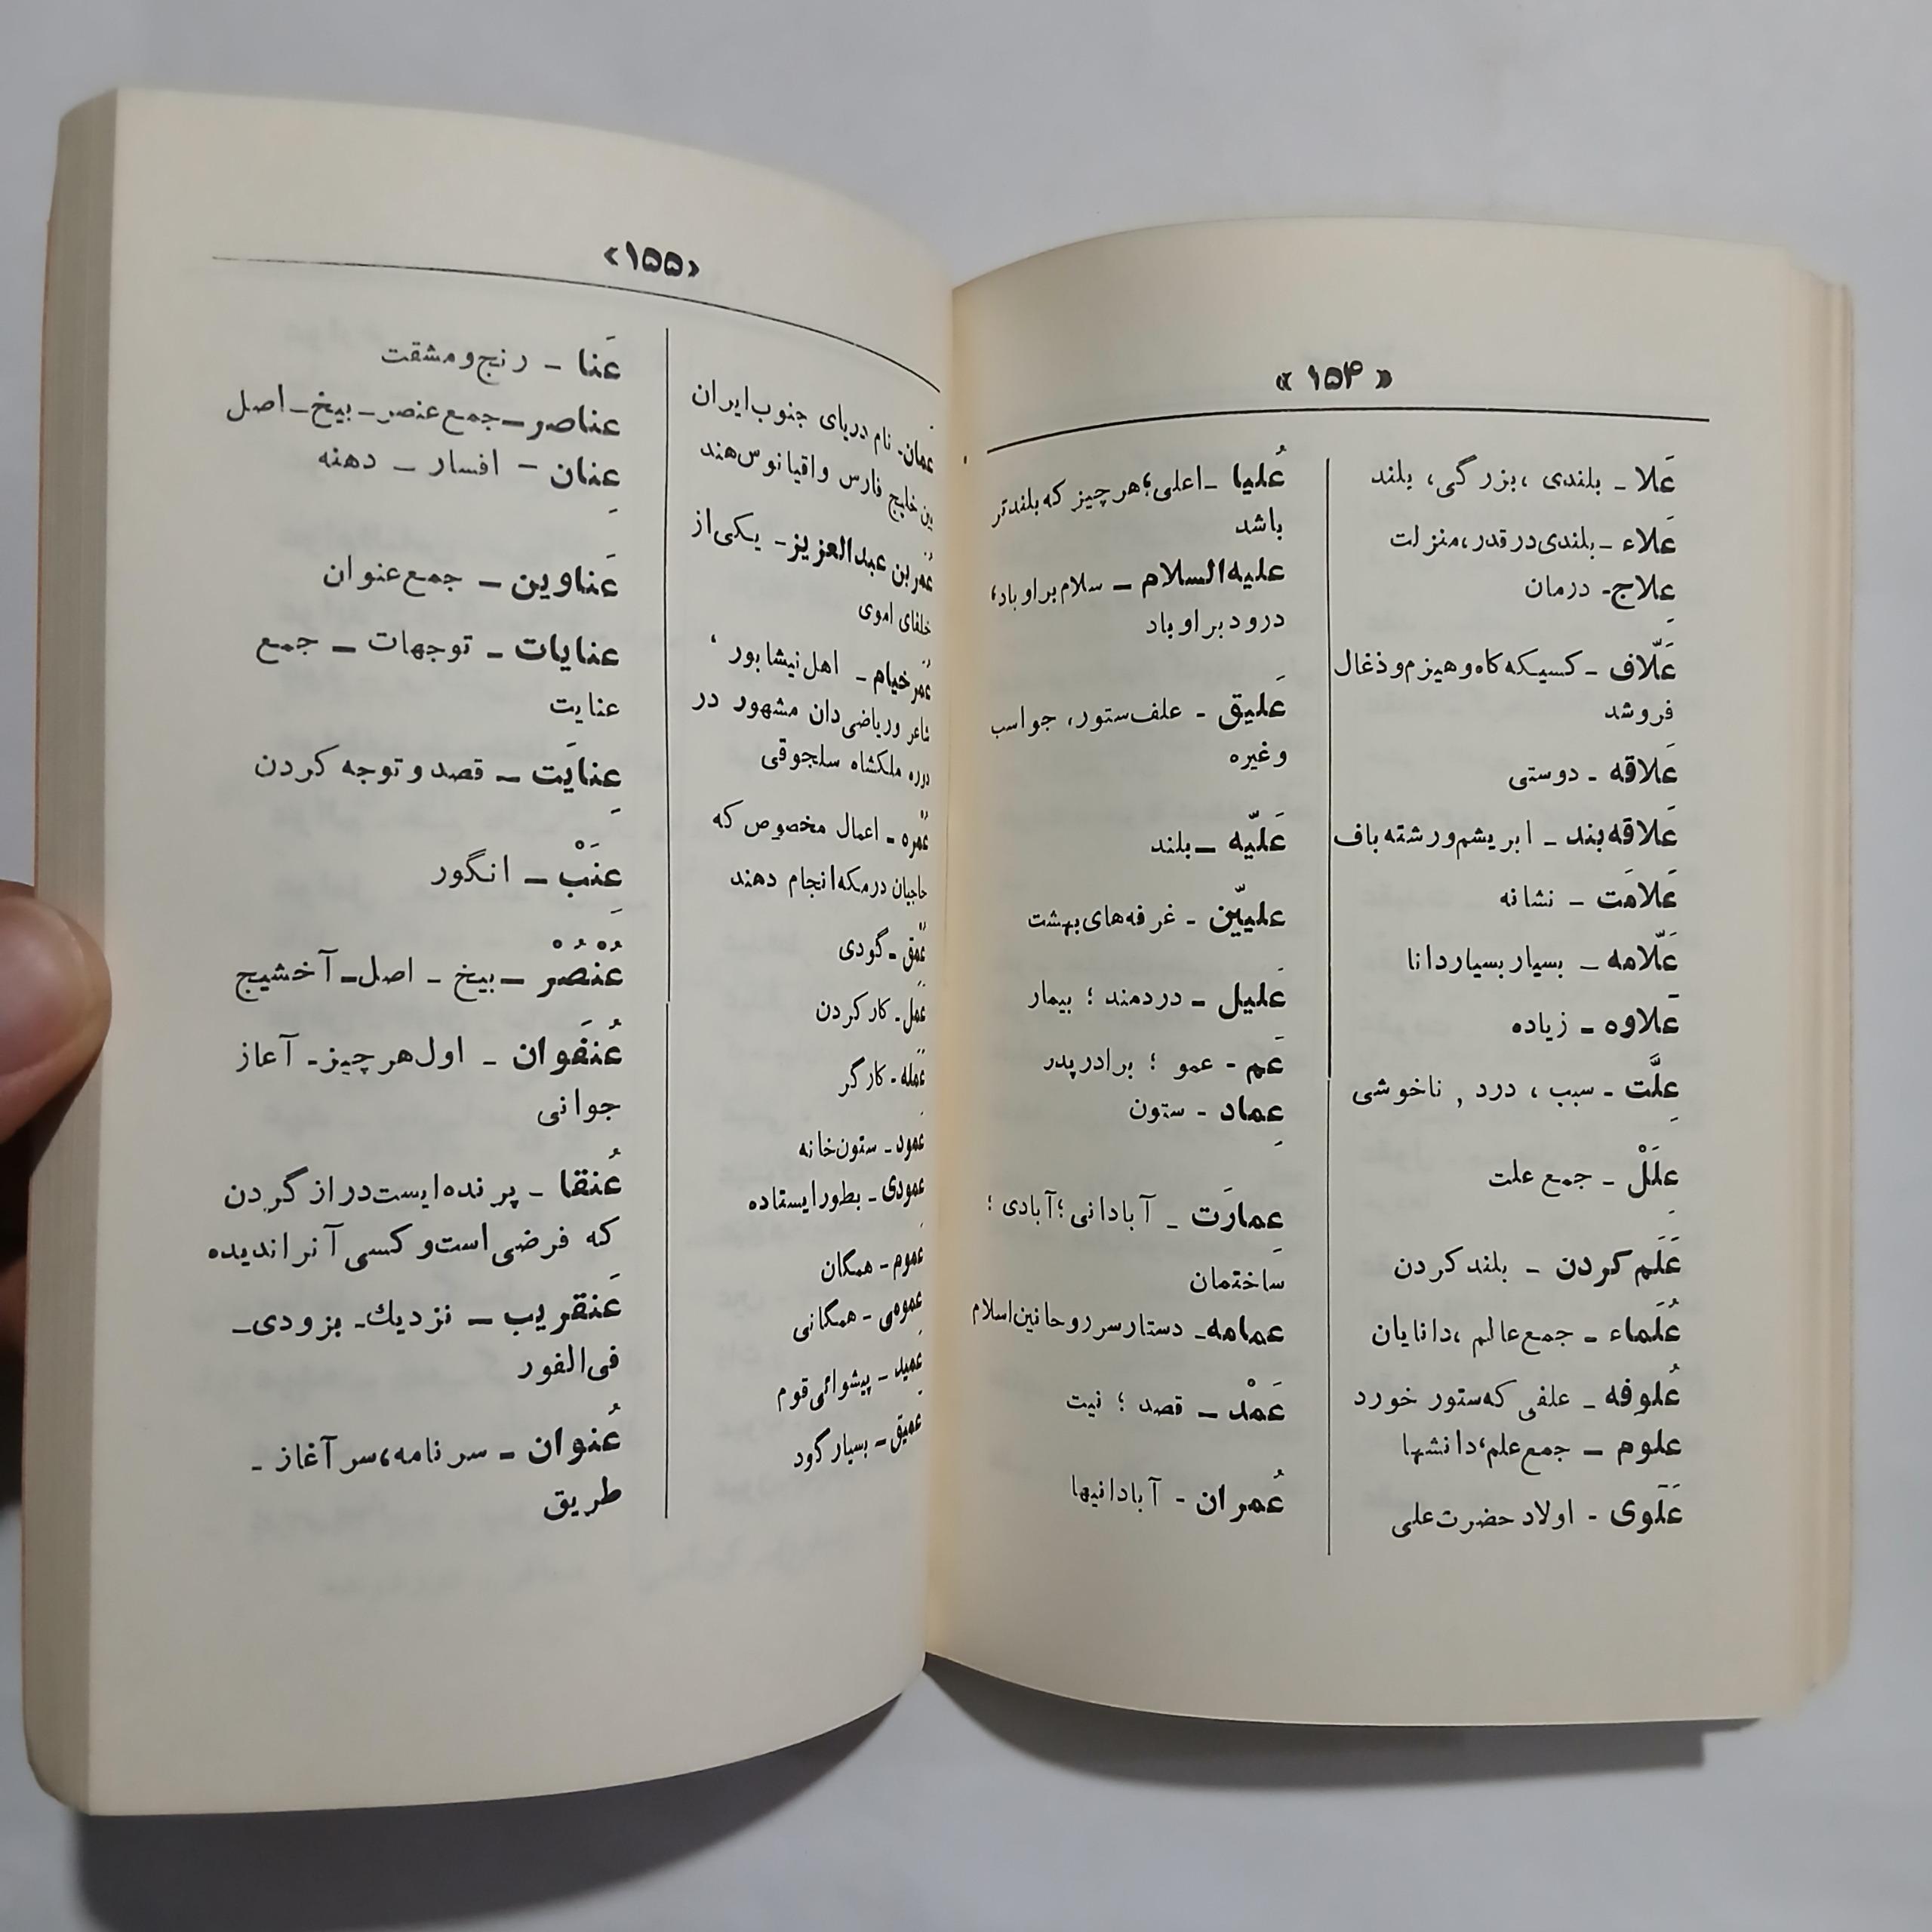 « ۱۵۴ »
عَلا - بلندی ، بزرگی، بلند
عَلاء - بلندی در قدر، منزلت
عِلاج - درمان
عَلّاف - کسیکه کاه و هیزم و ذغال
فروشد
عَلاقه - دوستی
عَلاقه‌بند - ابریشم و رشته باف
عَلامَت - نشانه
عَلّامه - بسیار بسیار دانا
عَلاوه - زیاده
عِلَّت - سبب ، درد , ناخوشی
عِلَلْ - جمع علت
عَلَم کردن - بلند کردن
عُلَماء - جمع عالم ، دانایان
عُلوفه - علفی که ستور خورد
علوم - جمع علم، دانشها
عَلَوی - اولاد حضرت علی
عُلیا - اعلی؛ هر چیز که بلندتر
باشد
علیه‌السلام - سلام بر او باد؛
درود بر او باد
عَلیق - علف ستور، جو اسب
و غیره
عَلیّه - بلند
علییّن - غرفه‌های بهشت
عَلیل - دردمند ؛ بیمار
عَم - عمو ؛ برادر پدر
عِماد - ستون
عِمارَت - آبادانی؛ آبادی ؛
ساختمان
عمامه - دستار سر روحانین اسلام
عَمدْ - قصد ؛ نیت
عُمران - آبادانیها
«۱۵۵»
عمان - نام دریای جنوب ایران
بین خلیج فارس و اقیانوس هند
عُمَر بن عبدالعزیز - یکی از
خلفای اموی
عُمَر خیام - اهل نیشابور ،
شاعر و ریاضی‌دان مشهور در
دوره ملکشاه سلجوقی
عُمْره - اعمال مخصوص که
حاجیان در مکه انجام دهند
عُمْق - گودی
عَمَل - کار کردن
عَمَله - کارگر
عَمود - ستون خانه
عمودی - بطور ایستاده
عموم - همگان
عمومی - همگانی
عمید - پیشوائی قوم
عمیق - بسیار گود
عَنا - رنج و مشقت
عناصر - جمع عنصر - بیخ - اصل
عِنان - افسار - دهنه
عَناوین - جمع عنوان
عنایات - توجهات - جمع
عنایت
عِنایَت - قصد و توجه کردن
عِنَبْ - انگور
عُنْصُرْ - بیخ - اصل - آخشیج
عُنفَوان - اول هر چیز - آعاز
جوانی
عُنقا - پرنده‌ایست دراز گردن
که فرضی است و کسی آنرا ندیده
عَنقریب - نزدیك - بزودی -
فی‌الفور
عُنوان - سرنامه، سرآغاز -
طریق